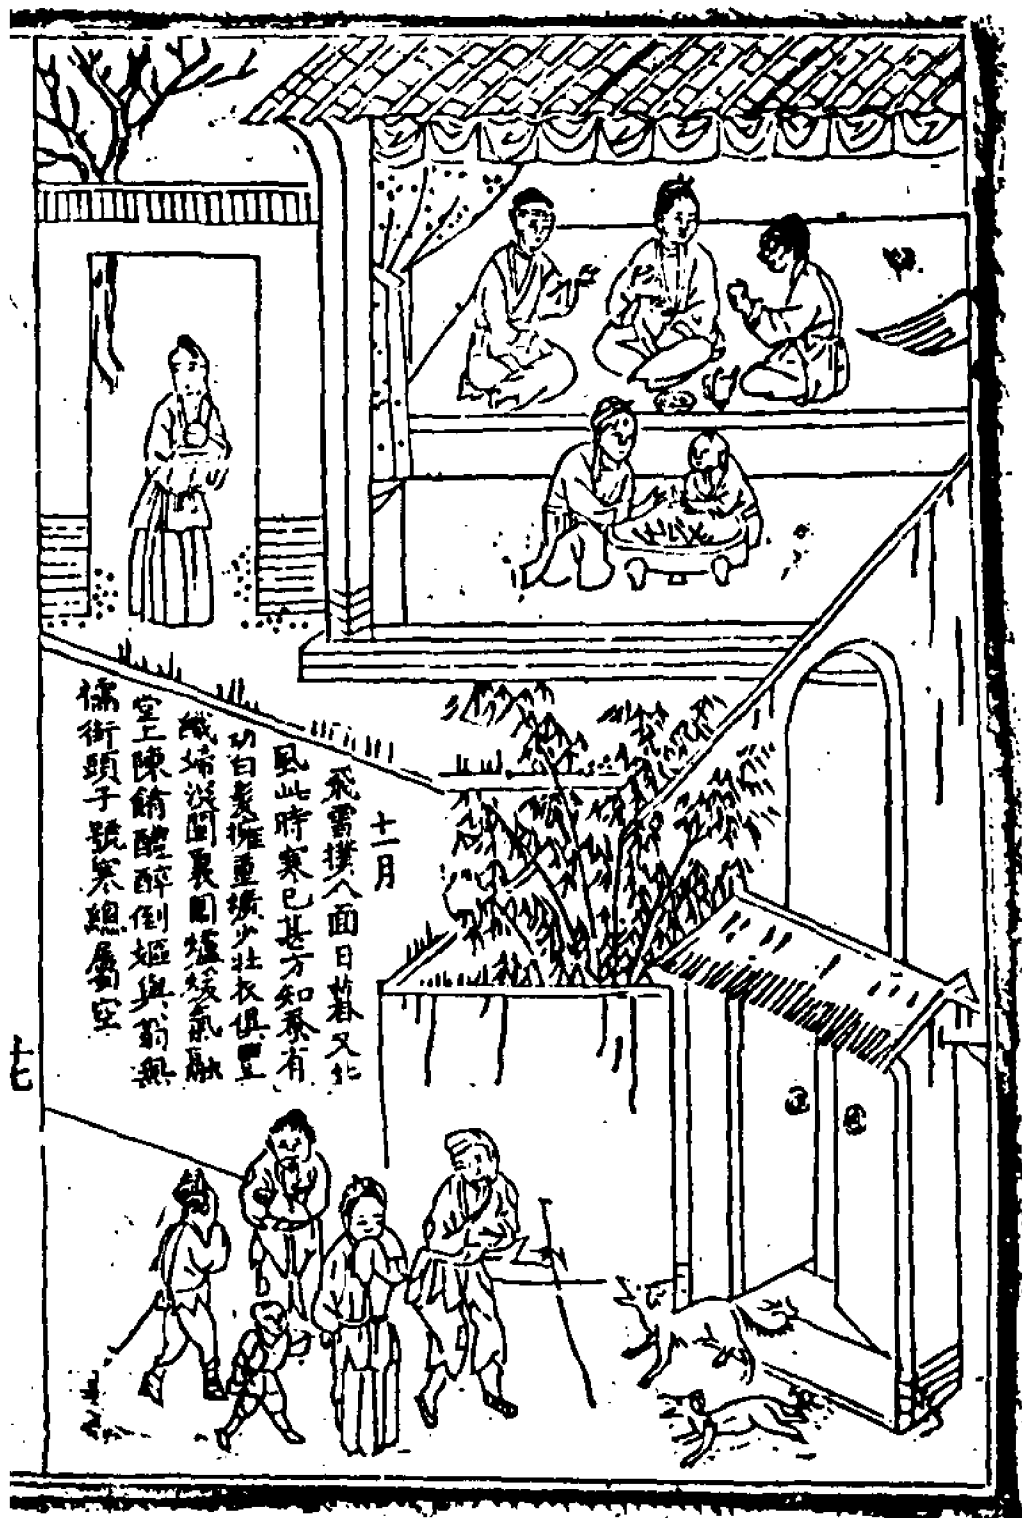 十一月
飛雪撲人面日暮又北
風此時寒已甚方知蚕有
功白髮擁重纊少壯衣俱豐
織婦深閨裏圍爐煖氣融
堂上陳餚醴醉倒嫗與翁無
襦街頭子號寒總屢空
十七